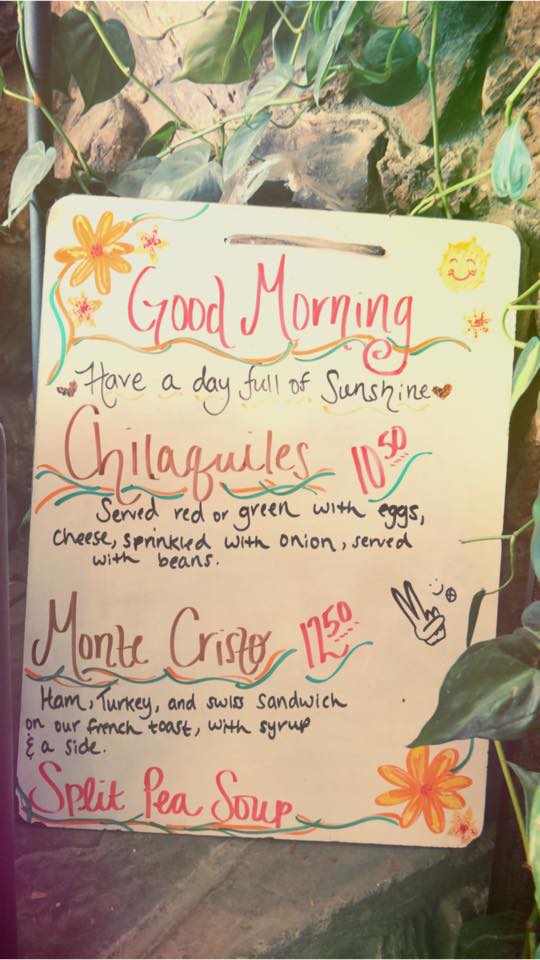 Good Morning
Have a day full of Sunshine
Chilaquiles 10.50
Served red or green with eggs,
cheese, sprinkled with onion, served
with beans.
Monte Cristo 12.50
Ham, Turkey, and swiss sandwich
on our french toast, with syrup
& a side.
Split Pea Soup